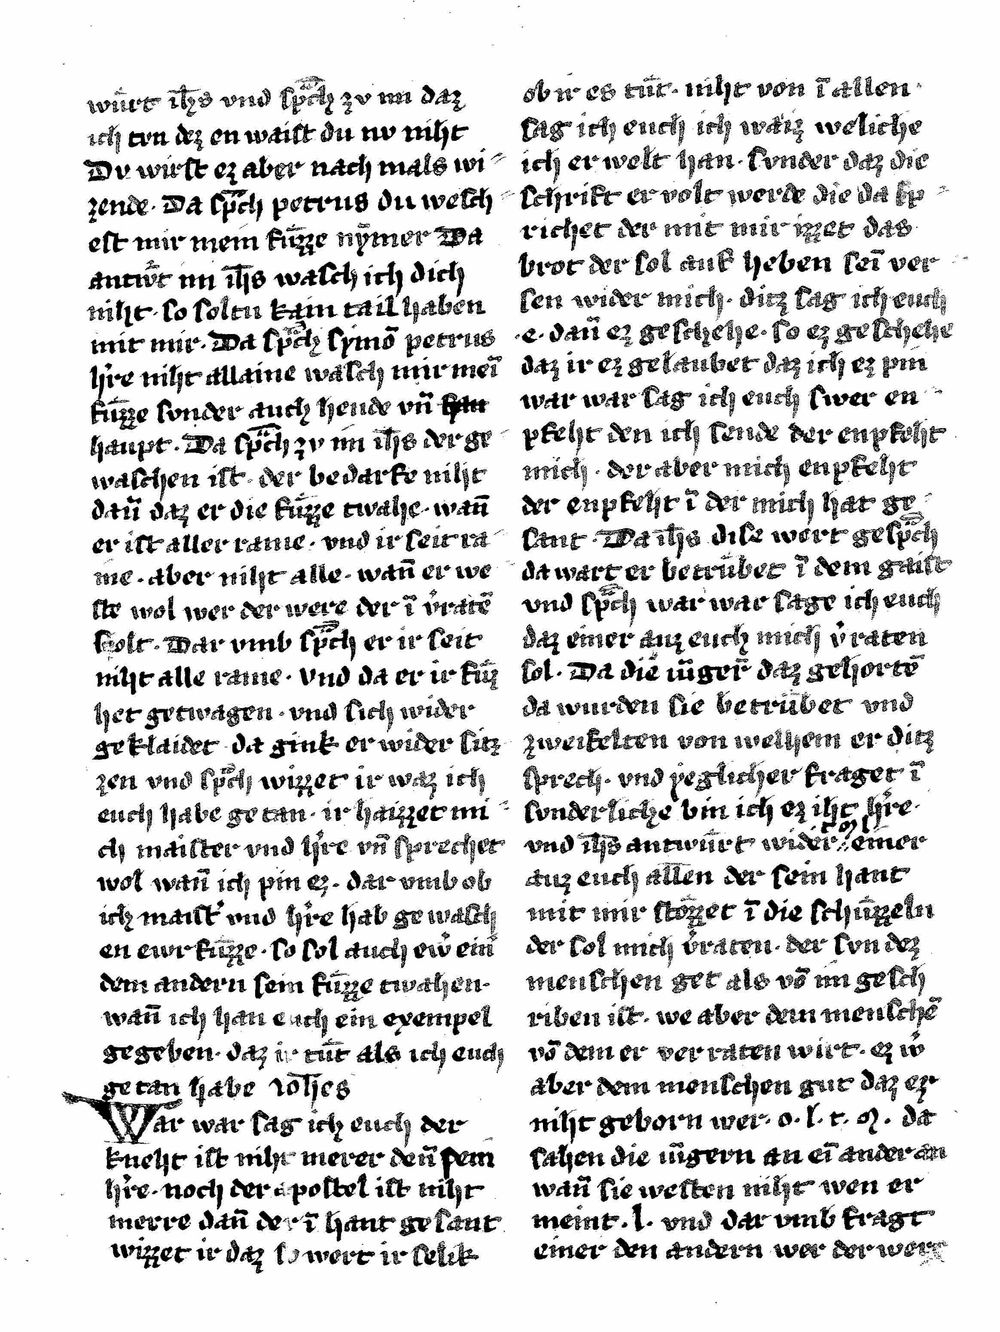 wuͤrt ih̄s vnd sp̄ch zv im daz
ich tvn dez en waist du nv niht
Dv wirst ez aber nach mals wi-
zende. Da sp̄ch petrus du wesch
est mir mein fuͤzze nẏmer Da
antwͤt im ih̄s wasch ich dich
niht. so soltu kain tail haben
mit mir. Da sp̄ch symō petrus
h̓re niht allaine wasch mir mei̅
fuͤzze sonder auch hende vn̄
haupt. Da sp̄ch zv im ih̄s der ge
waschen ist. der bedarfe niht
dan̄ daz er die fuͤzze twahe. wan̄
er ist aller raine. vnd ir seit ra
ine. aber niht alle. wan̄ er we
ste wol wer der were der i̅ v̓ratē
solt. Dar vmb sp̄ch er ir seit
niht alle raine. vnd da er ir fuͤz
het getwagen. vnd sich wider
geklaidet da gink er wider sitz
zen vnd sp̄ch wizzet ir waz ich
euch habe getan. ir haizzet mi-
ch maister vnd h̓re vn̄ sprechet
wol wan̄ ich pin ez. dar vmb ob
ich maist̓ vnd h̓re hab gewasch
en ewr fuͤzze. so sol auch ew̓ ein̓
dem andern sein fuͤzze twahen.
wan̄ ich han euch ein exempel
gegeben. daz ir tuͤt als ich euch
getan habe Joh̄es
War war sag ich euch der
kneht ist niht merer den̄ sein
h̓re. noch der apostel ist niht
merre dan̄ der i̅ hant gesant
wizzet ir daz so wert ir selik
ob ir es tuͤt. niht von i̅ allen.
sag ich euch ich waiz weliche
ich erwelt han. sunder daz die
schrift ervolt werde die da sp-
richet der mit mir izzet das
brot der sol auf heben sei̅ ver-
sen wider mich. ditz sag ich euch
.e. dan̄ ez geschehe. so ez geschehe
daz ir ez gelaubet daz ich ez pin
war war sag ich euch swer en-
pfeht den ich sende der enpfeht
mich. der aber mich enpfeht
der enpfeht i̅ der mich hat ge-
sant. Da ih̄s dise wort gesp̄ch
da wart er betruͤbet i̅ dem gaist
vnd sp̄ch war war sage ich euch
daz einer auz euch mich v̓raten
sol. Da die iu̅ger̄ daz gehortē
da wurden sie betruͤbet vnd
zweifelten von welhem er ditz
sprech. vnd ẏeglicher fraget i̅
sunderliche bin ich ez iht h̓re.
vnd ih̄s antwuͤrt wider einer
auz euch allen der sein hant
mit mir stoͤzzet i̅ die schuͤzzeln
der sol mich v̓raten. der svn dez
menschen get als vō im gesch
riben ist. we aber dem menschē
vō dem er verraten wirt. ez w̓
aber dem menschen gut daz er
niht geborn wer. o. l. t. m. da
sahen die iu̅gern an ei̅ ander an
wan̄ sie westen niht wen er
meint. l. vnd dar vmb fragt
einer den andern wer der were